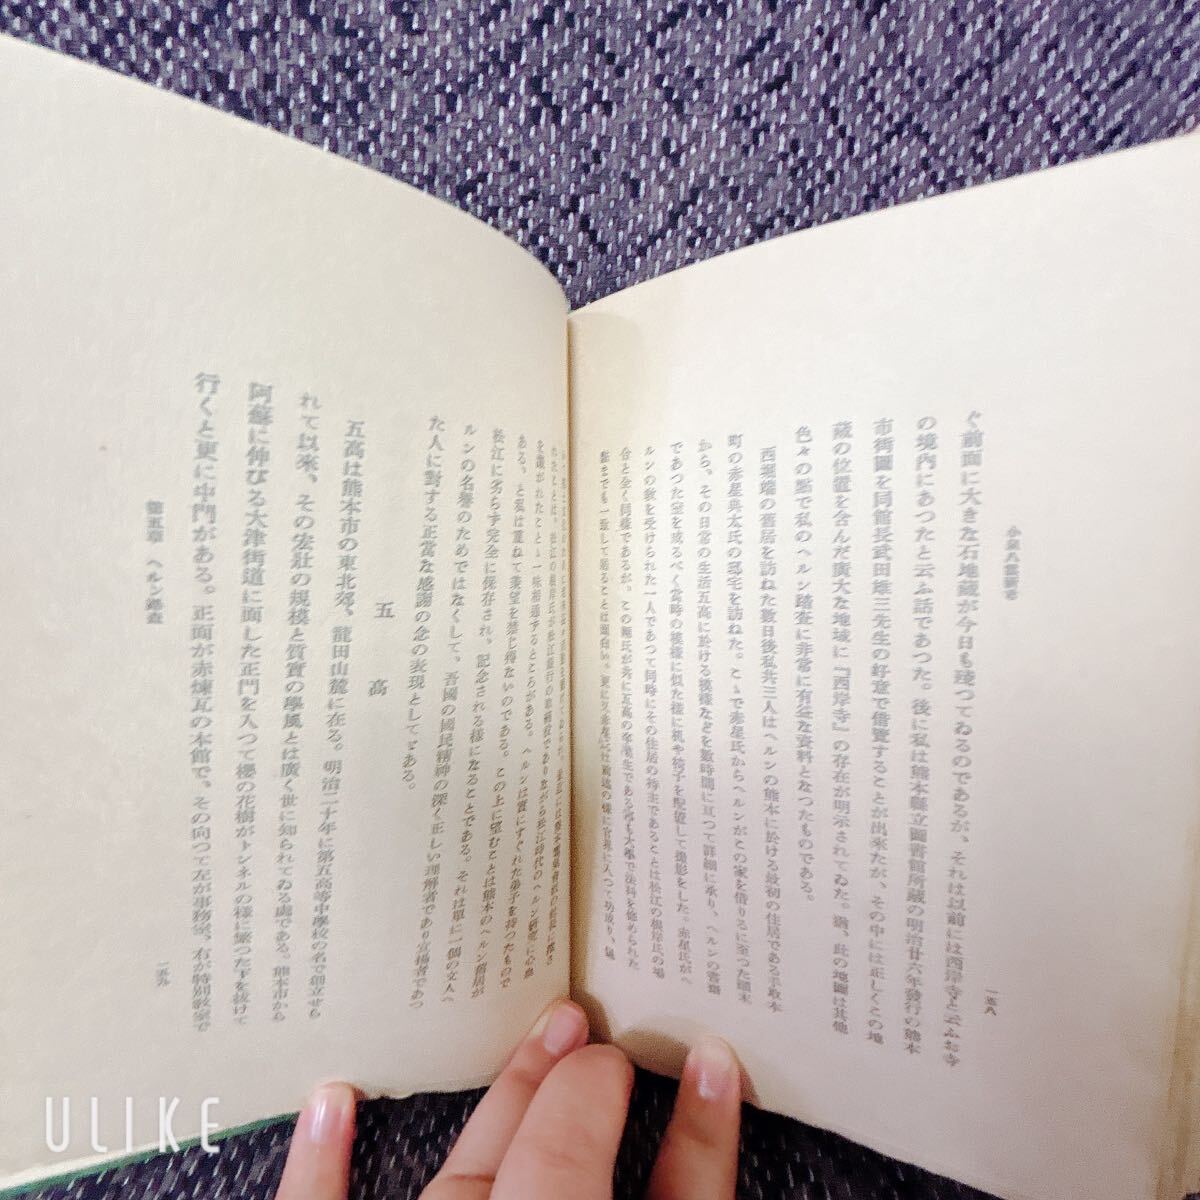 小泉八雲新考
ぐ前面に大きな石地藏が今日も殘つてゐるのであるが、それは以前には西岸寺と云ふお寺
の境內にあつたと云ふ話であつた。後に私は熊本縣立圖書館所藏の明治廿六年發行の熊本
市街圖を同館長武田雄三先生の好意で借覽することが出來たが、その中には正しくこの地
藏の位置を含んだ廣大な地域に『西岸寺』の存在が明示されてゐた。尙、此の地圖は其他
色々の點で私のヘルン踏査に非常に有益な資料となつたものである。
西堀端の舊居を訪ねた數日後私共三人はヘルンの熊本に於ける最初の住居である手取本
町の赤星典太氏の邸宅を訪ねた。こゝで赤星氏からヘルンがこの家を借りるに至つた顚末
から、その日常の生活五高に於ける模樣などを數時間に亙つて詳細に承り、ヘルンの書齋
であつた室を成るべく當時の模樣に似た樣に机や椅子を配置して撮影をした。赤星氏がヘ
ルンの敎を受けられた一人であつて同時にその住居の持主であることは松江の根岸氏の場
合と全く同樣であるが、この兩氏が共に五高の卒業生である
點までも一致して居ることは面白い。
一五八
を
ある。と私は重ねて冀望を禁じ得ないのである。ヘルンは實にすぐれた弟子を持つたもので
松江に劣らず完全に保存され、記念される樣になることである。この上に望むことは熊本のヘルン舊居が
ルンの名譽のためではなくして、吾國の國民精神の深く正しい理解者であり宣揚者であつ
た人に對する正當な感謝の念の表現としてゞある。
五高
五高は熊本市の東北郊、龍田山麓に在る。明治二十年に第五高等中學校の名で創立せら
れて以來、その宏壯の規模と質實の學風とは廣く世に知られてゐる處である。熊本市から
阿蘇に伸びる大津街道に面した正門を入つて櫻の花樹がトンネルの樣に繁つた下を拔けて
行くと更に中門がある。正面が赤煉瓦の本館で、その向つて左が事務室、右が特別敎室で
第五章 ヘルン踏査
一五九
ULIKE